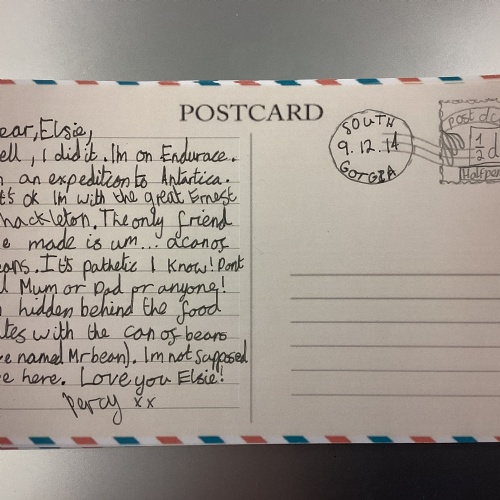 POSTCARD
ear, Elsie,
ell, I did it. I'm on Endurace.
n an expedition to Antartica.
t's ok Im with the great Ernest
hackleton. The only friend
e made is um... a can of
eans. It's pathetic I know! Dont
l Mum or Dad or anyone!
hidden behind the food
tes with the can of beans
e named Mr bean). Im not supposed
e here. Love you Elsie!
Percy xx
SOUTH
9.12.14
GOTGIA
post
1/2 d
Halfpen